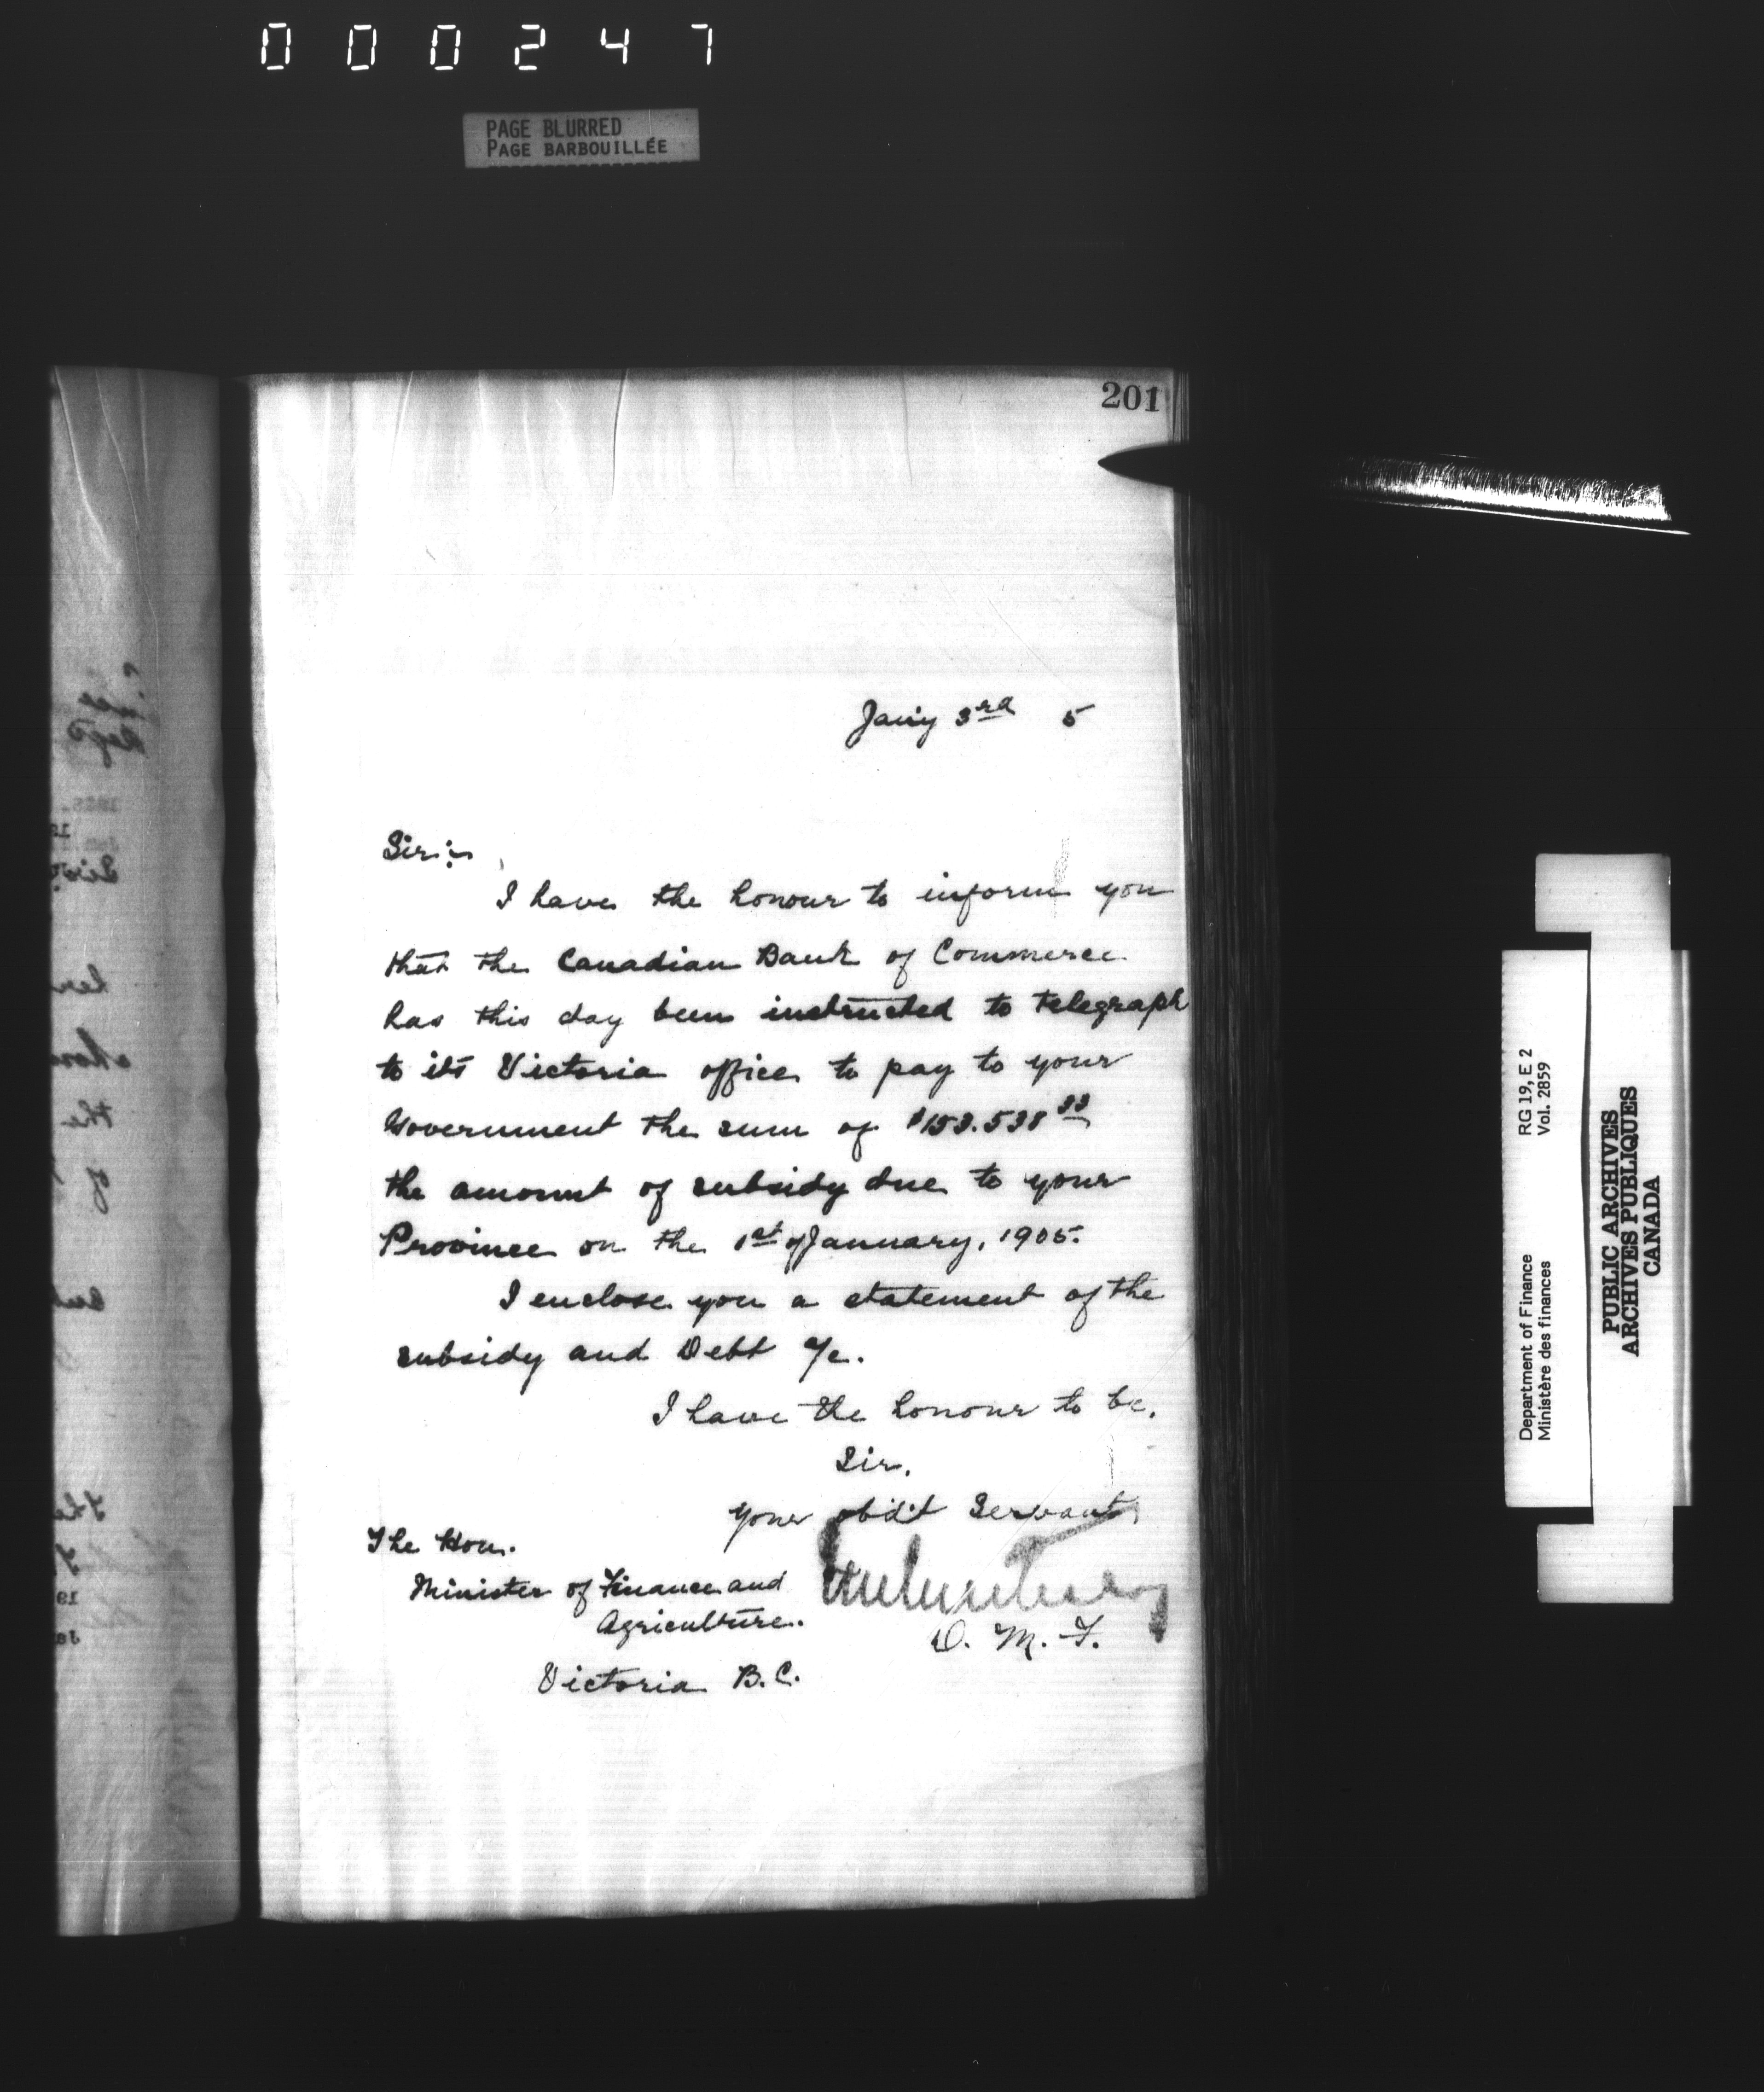 000247
PAGE BLURRED
PAGE BARBOUILLÉE
201
Jany 3rd 5
Sir:-
I have the honour to inform you
that the Canadian Bank of Commerce
has this day been instructed to telegraph
to its Victoria office to pay to your
Government the sum of $153.538 33
the amount of subsidy due to your
Province on the 1st of January, 1905.
I enclose you a statement of the
subsidy and Debt a/c.
I have the honour to be,
Sir,
your obd't Servant
The Hon.
Minister of Finance and
Agriculture.
D. M. F.
Victoria B.C.
RG 19, E 2
Vol. 2859
Department of Finance
Ministère des finances
PUBLIC ARCHIVES
ARCHIVES PUBLIQUES
CANADA